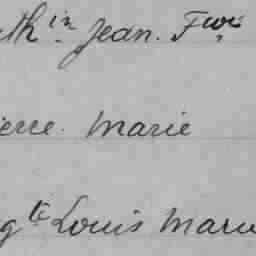 ath.in Jean. Fçois
ierre. Marie
gte Louis Marie